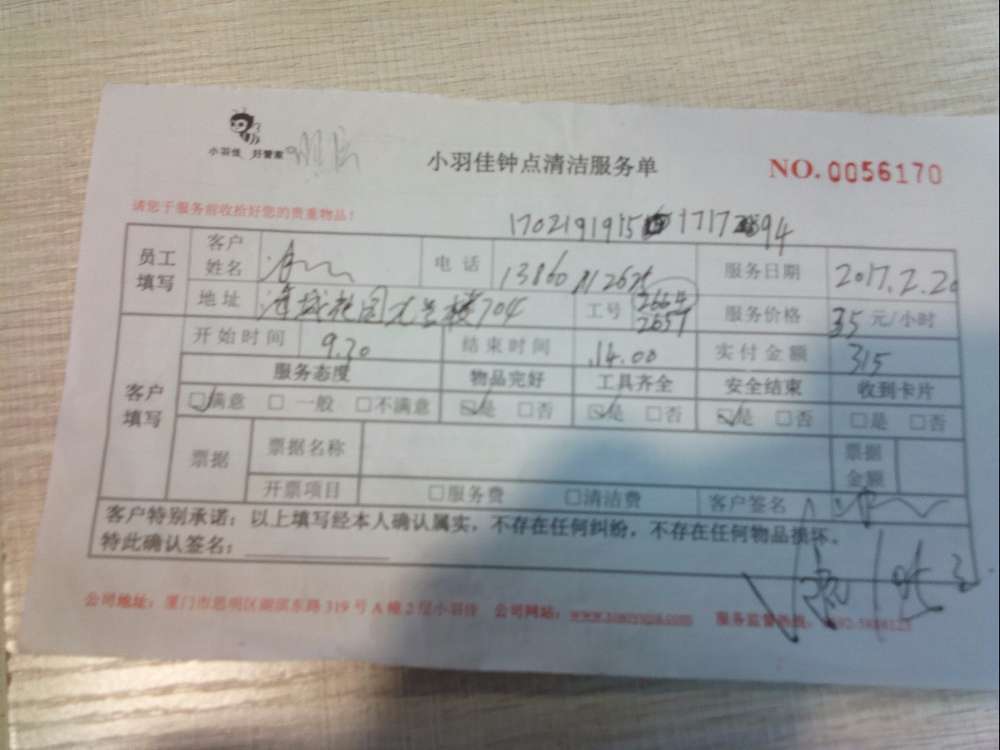 小羽佳 好管家
小羽佳钟点清洁服务单
NO. 0056170
请您于服务前收拾好您的贵重物品！
员工填写 客户姓名 电话 服务日期 2017.2.20
地址 704 工号 2664 2657 服务价格 35 元/小时
客户填写 开始时间 9.30 结束时间 14.00 实付金额 315
服务态度 物品完好 工具齐全 安全结束 收到卡片
满意 一般 不满意 是 否 是 否 是 否 是 否
票据 票据名称 票据金额
开票项目 服务费 清洁费 客户签名
客户特别承诺：以上填写经本人确认属实，不存在任何纠纷，不存在任何物品损坏。
特此确认签名：
公司地址：厦门市思明区湖滨东路 319 号 A 幢 2 层小羽佳 公司网站： 服务监督热线：